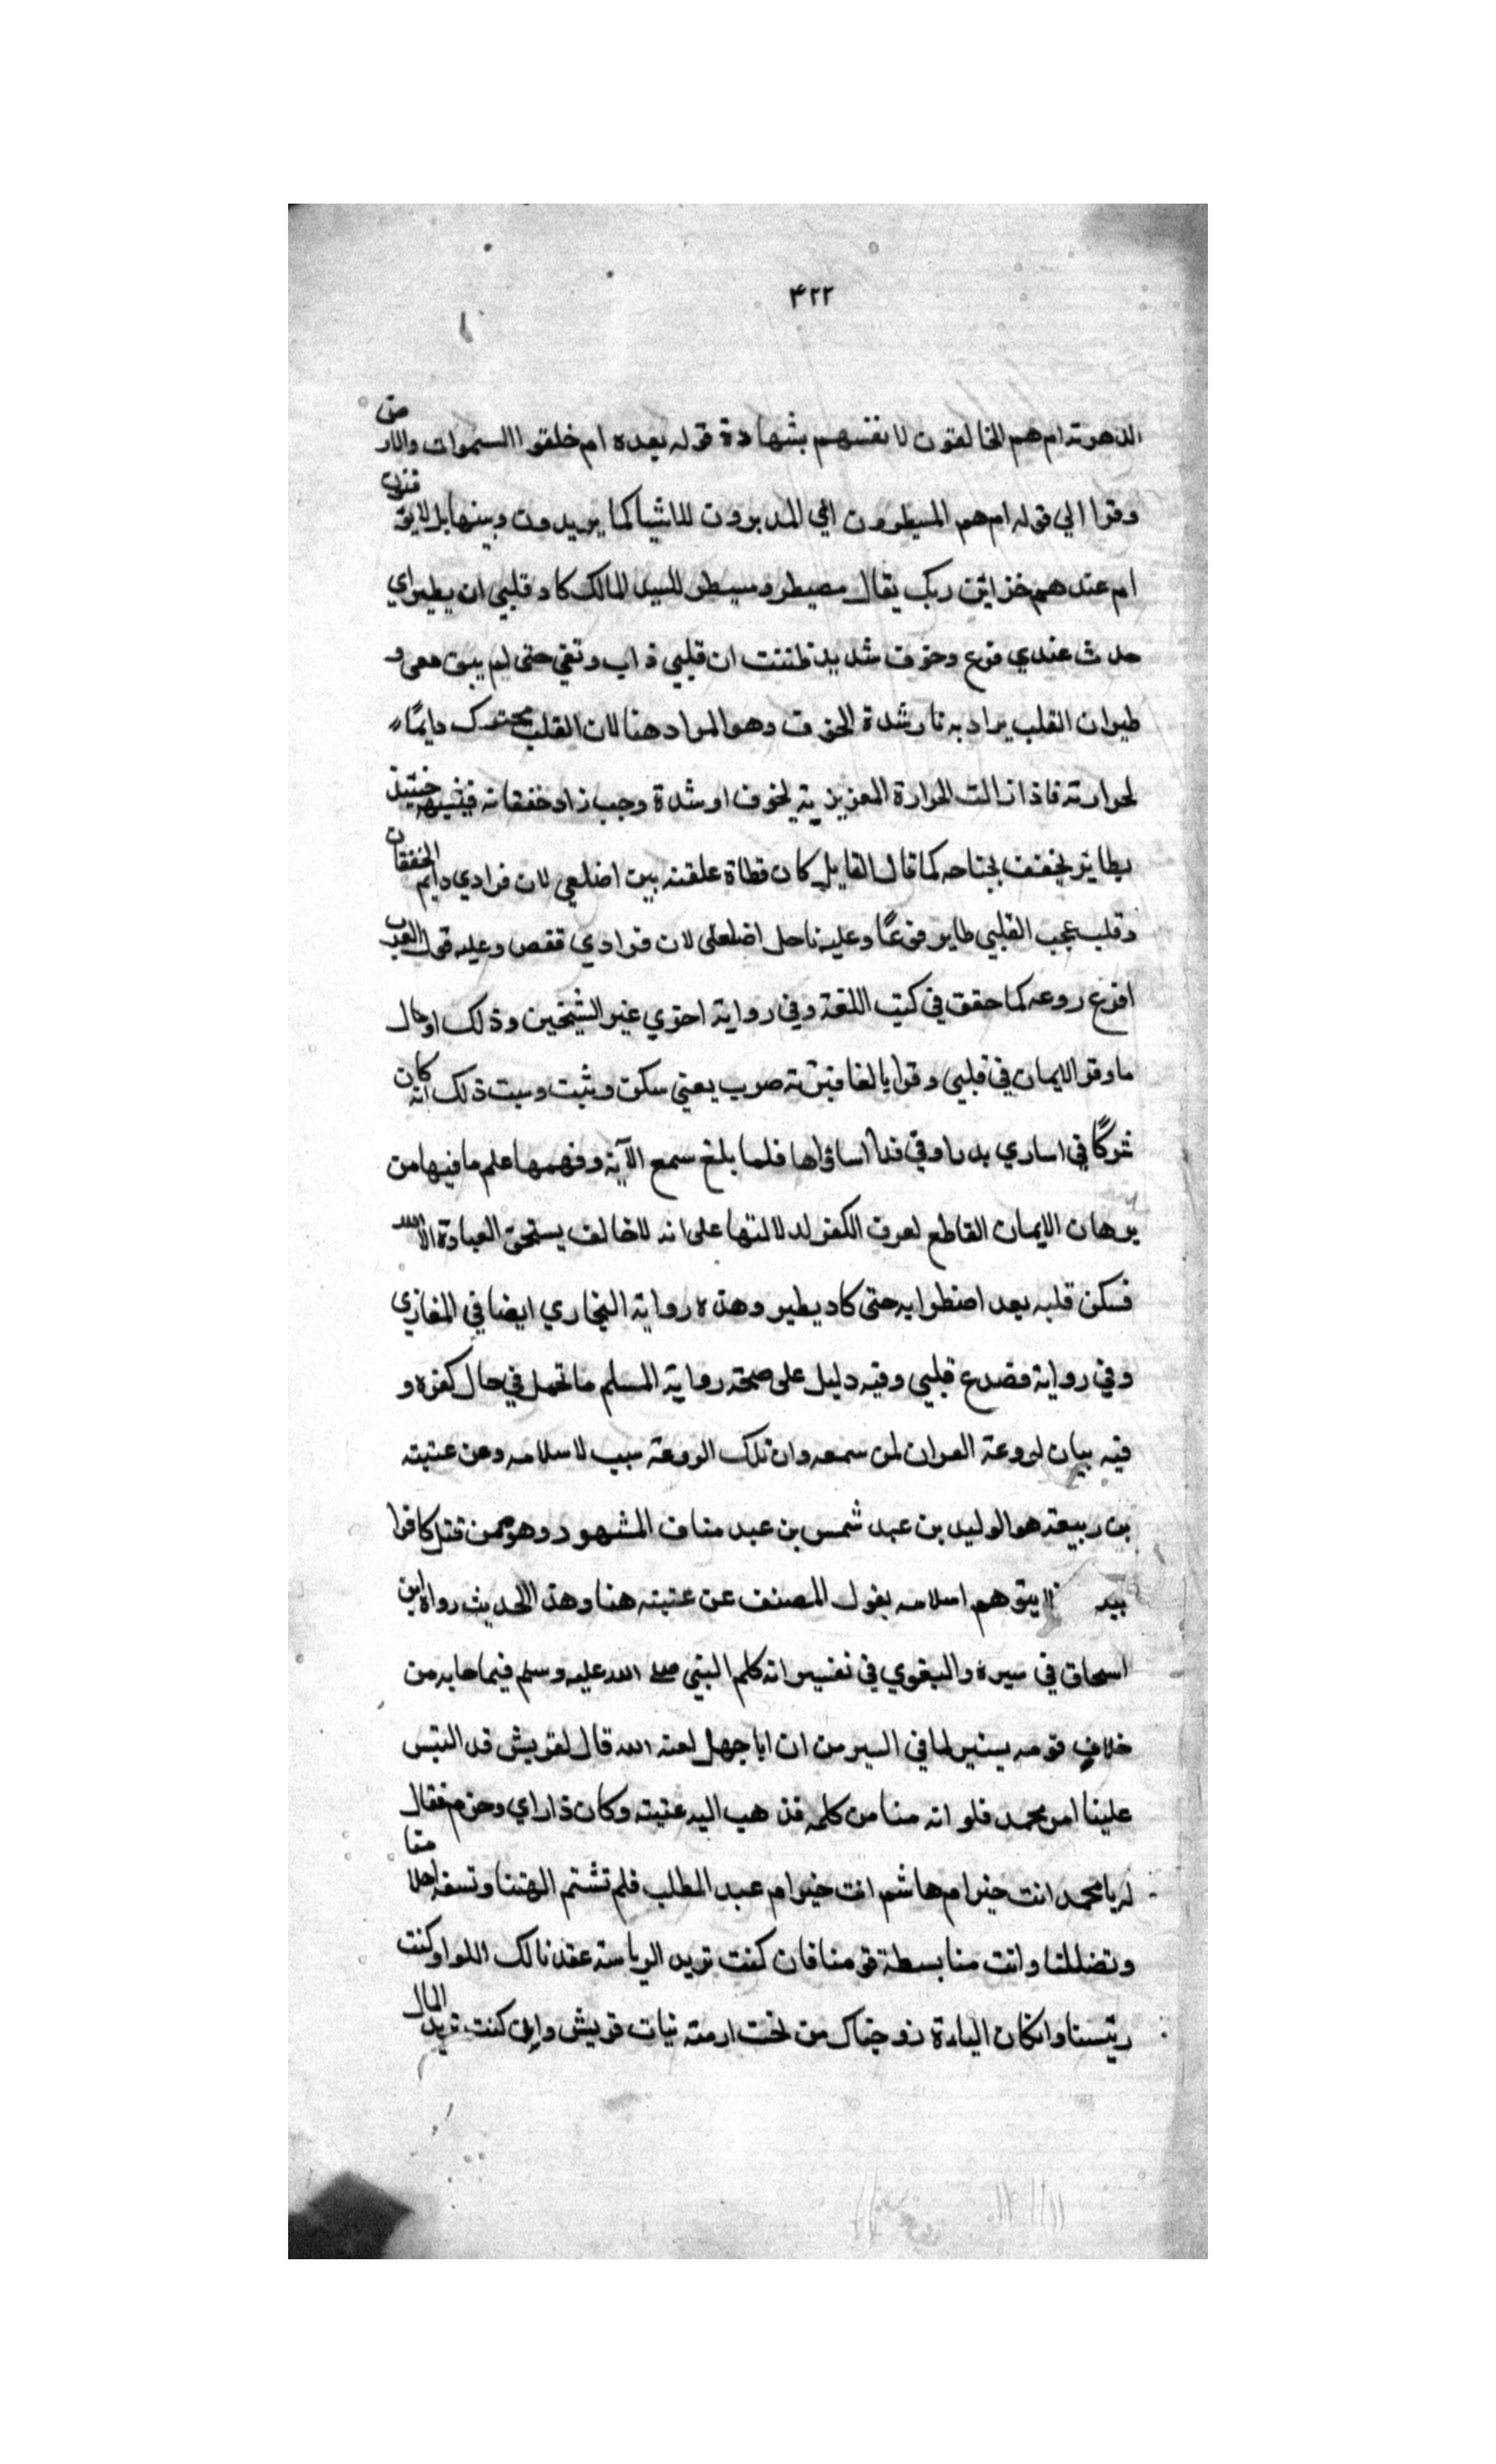 ۴۲۲
الدهرته ام هم الخالقون لانفسهم بشهادة قوله بعده ام خلقوا السموات والارض
وقرا الي قوله ام هم المسيطرون اي المدبرون للاشيا كما يريدون وبينها بل لا يوقنون
ام عندهم خزاين ربك يقال مصيطر ومسيطر للسيد المالك كاد قلبي ان يطير اي
حدث عندي فزع وخوف شديد ظننت ان قلبي ذاب وتقي حتى لم يبق معي و
طيران القلب يراد به تارشدة الخوف وهو المراد هنا لان القلب محترك دايمًا
لحرارته فاذا زالت الحرارة العزيزية لخوف او شدة وجب زاد خفقانه فيشبه حينئذ
بطاير يخفف بجناحه كما قال القايل كان قطاة علقته بين اضلعي لان فوادي دايم الخفقان
وقلب عجب القلبي طاير فزعًا وعليه ناحل اضلعلى لان فوادي قفص وعليه قول العرب
افزع روعه كما حقق في كتب اللغة وفي رواية اخري غير الشيخين وذلك اوحال
ما وقر الايمان في قلبي وقرا بالغا فيه صرب يعني سكن وثبت وسبت ذلك انه كان
شركًا في اساري بدر او في فدا اساراها فلما بلغ سمع الآية وفهمها علم ما فيها من
برهان الايمان القاطع لعرف الكفر لدلالتها على انه لا خالف يستحق العبادة الا الله
فسكن قلبه بعد اضطرابه حتى كاد يطير وهذه رواية البخاري ايضا في المغازي
وفي رواية فصدع قلبي وفيه دليل على صحة رواية المسلم ما تحمل في حال كفره و
فيه بيان لروعة العران لمن سمعه وان تلك الروعة سبب لاسلامه وعن عتبته
بن ربيعة هو الوليد بن عبد شمس بن عبد مناف المشهود وهو ممن قتل كافرا
ببد لا يتوهم اسلامه بقول المصنف عن عتبته هنا وهذا الحديث رواه ابن
اسحاق في سيره والبغوي في تفسير انه كلم البني صلى الله عليه وسلم فيما جابه من
خلاف قومه يسير لما في السير من ان ابا جهل لعنه الله قال لقريش قد التبس
علينا امر محمد فلو انه منا من كلمه فذهب اليه عتبته وكان ذا راي وحزم فقال
له يا محمد انت خير ام هاشم انت خير ام عبد المطلب فلم تشتم الهتنا وتسفه احلامنا
وتضللنا وانت منا بسطة قومنا فان كنت تريد الرياسة عقدنا لك اللوا وكنت
رئيسنا وانكان اليادة زوجناك من تخت ارمته نبات قريش وان كنت تريد المال